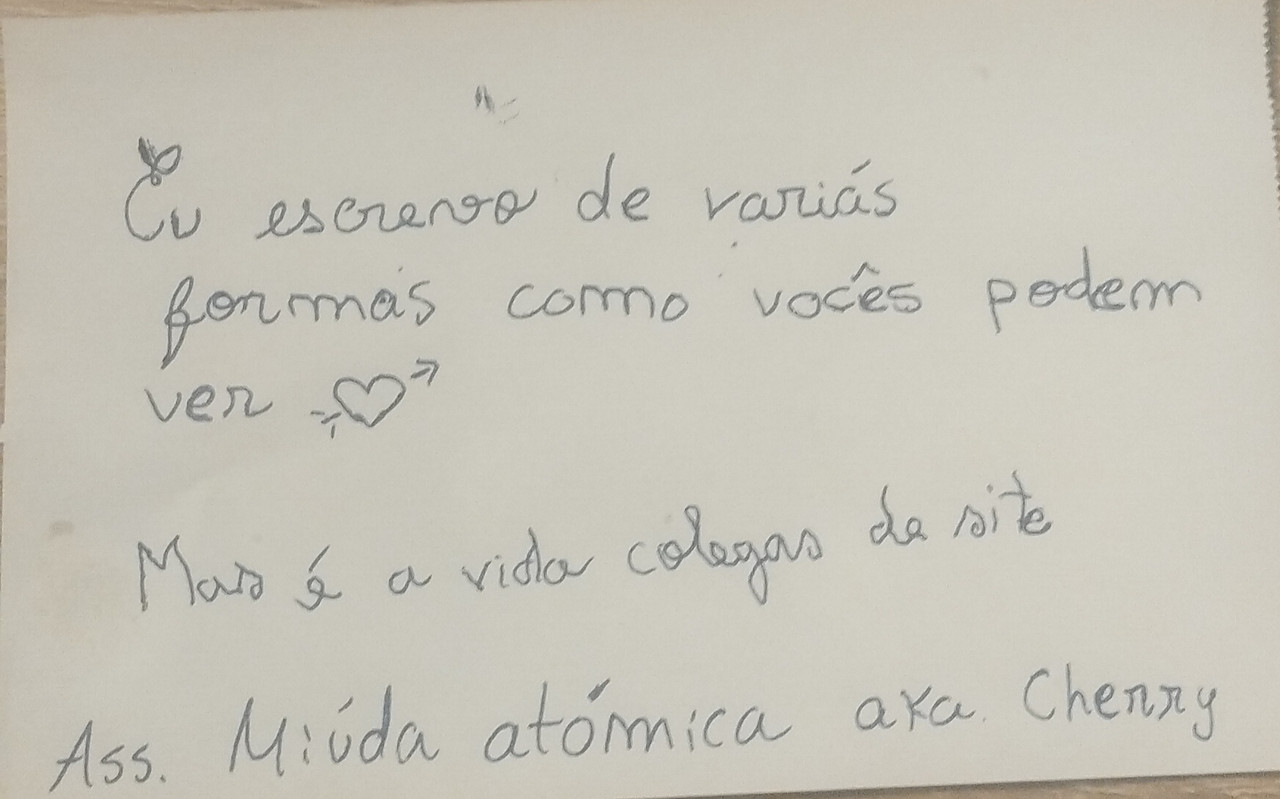 Eu escrevo de variás
formas como vocês podem
ver
Mas é a vida colegas de site
Ass. Miúda atómica aka Cherry